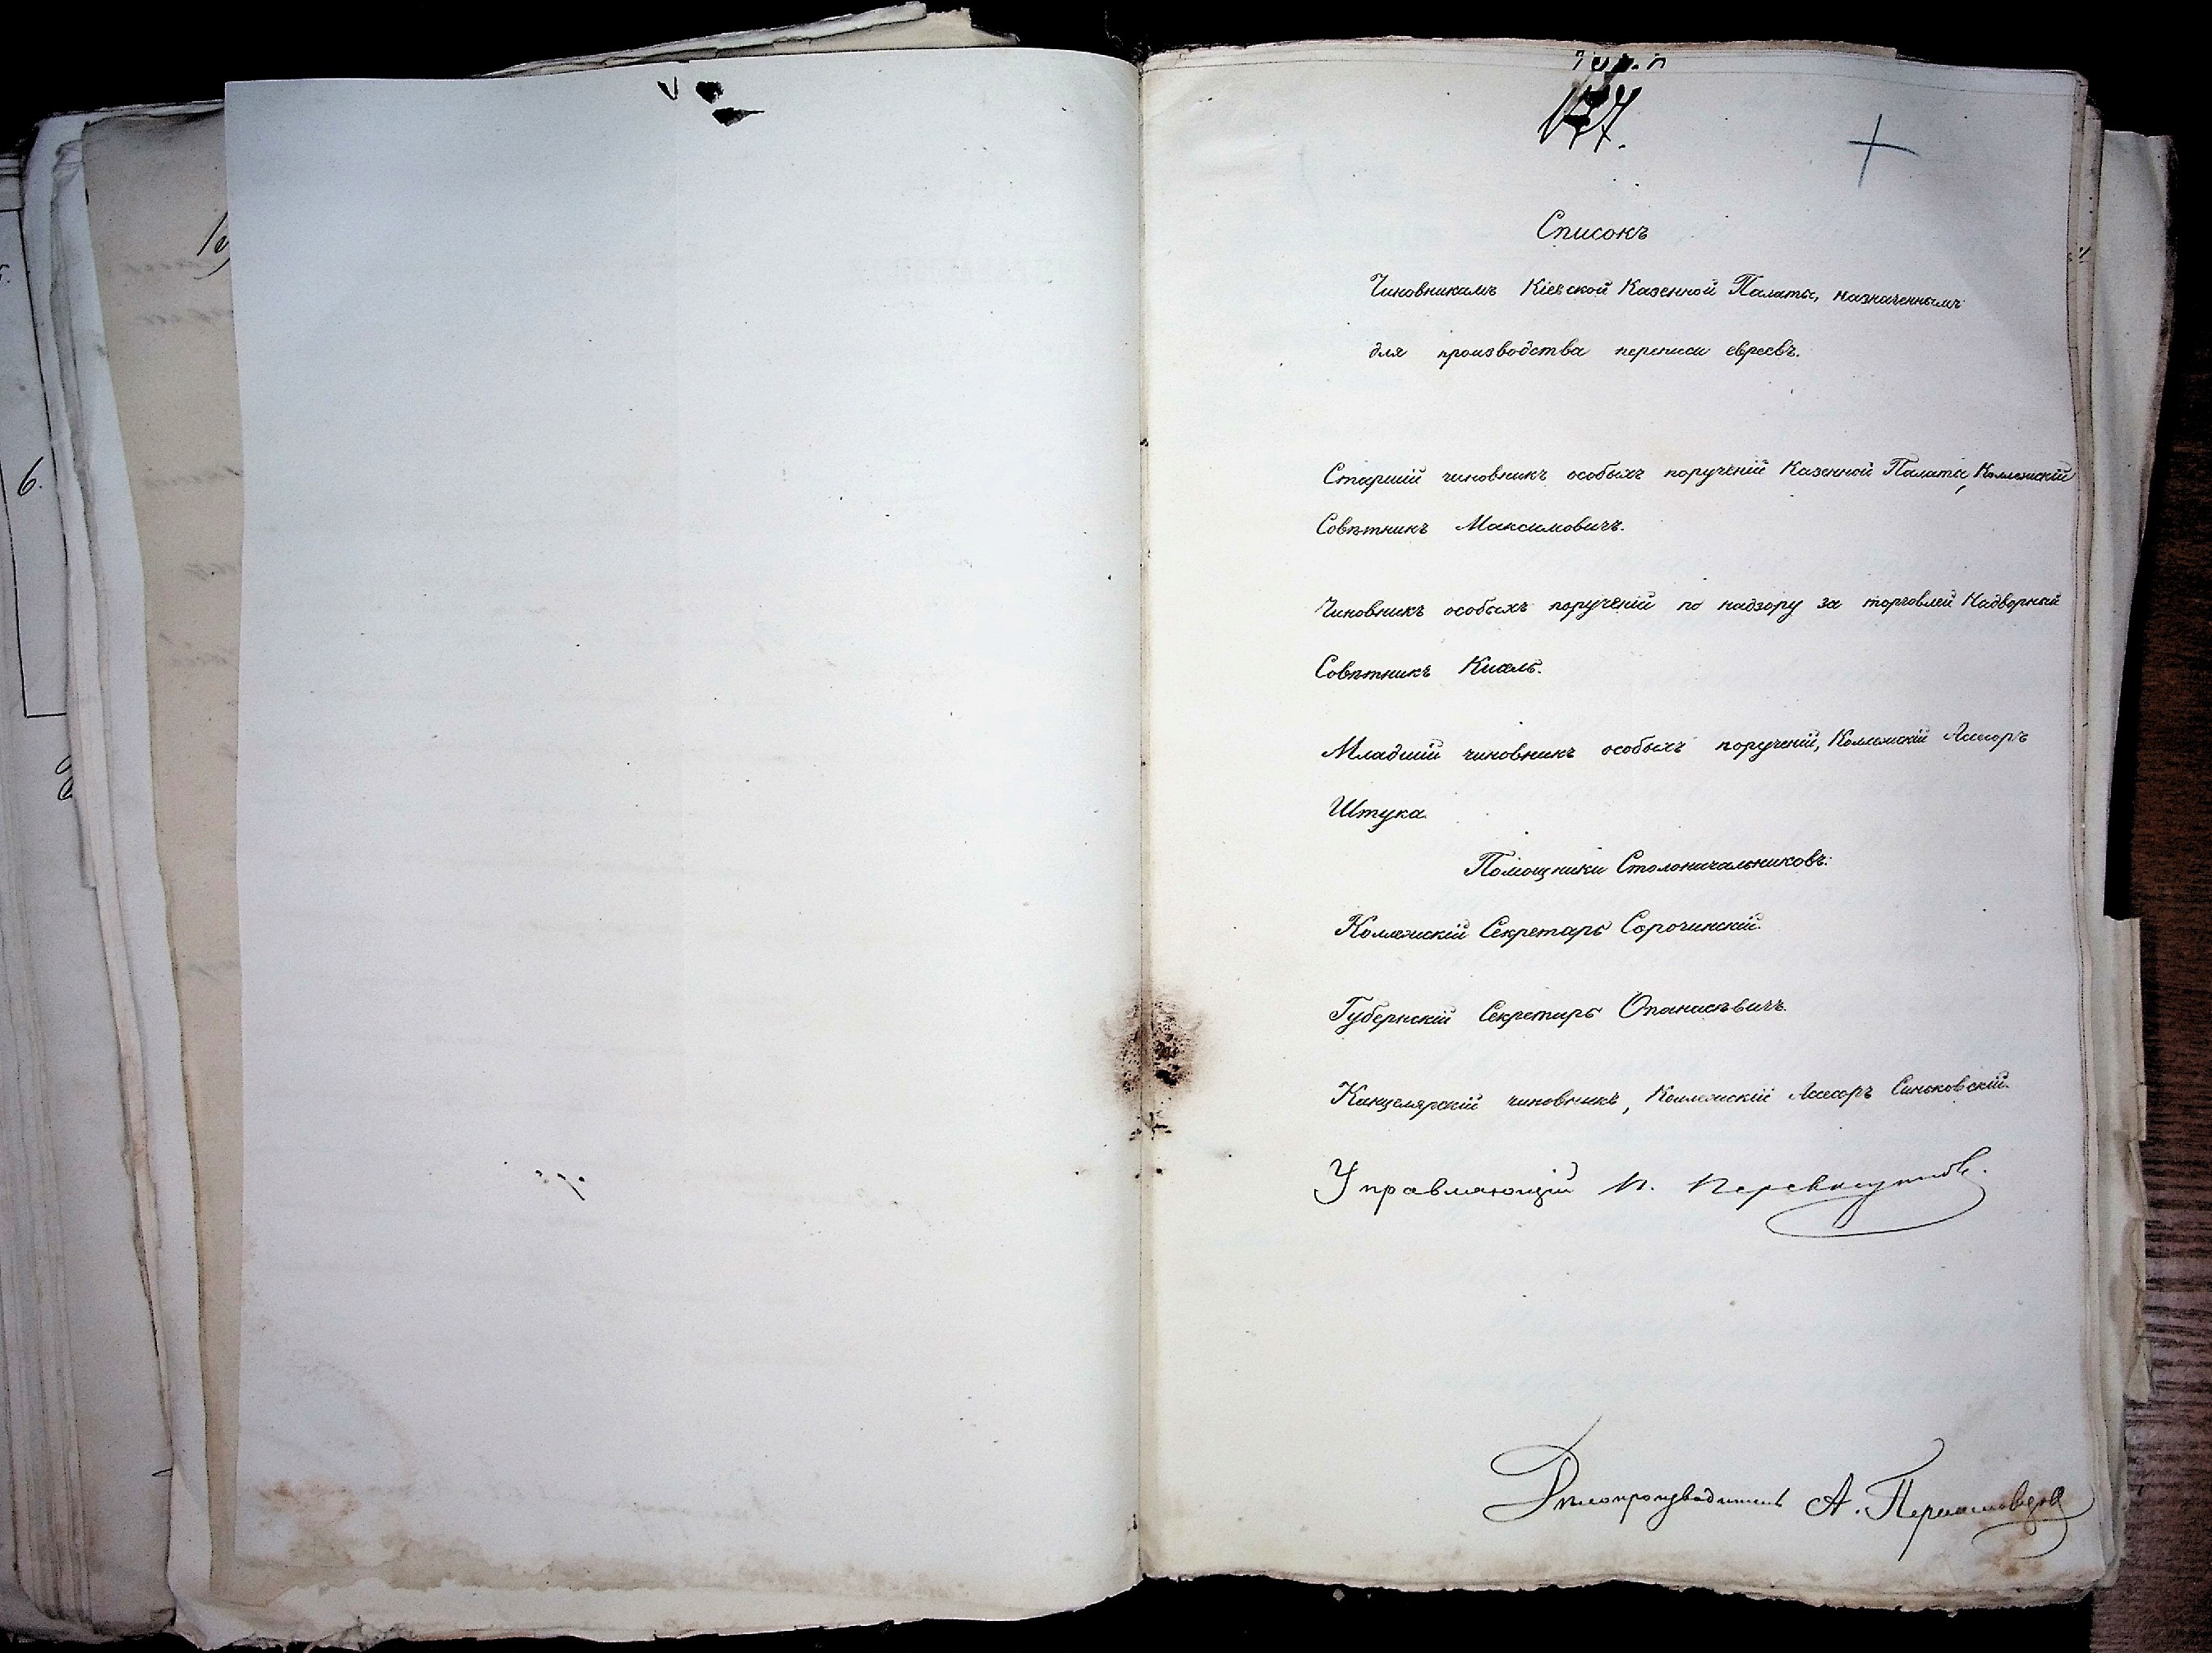 6.
177.
Списокъ
Чиновникамъ Кіевской Казенной Палаты, назначеннымъ
для производства переписи евреевъ.
Старшій чиновникъ особыхъ порученій Казенной Палаты, Коллежскій
Совѣтникъ Максимовичъ.
Чиновникъ особыхъ порученій по надзору за торговлей Надворный
Совѣтникъ
Младшій чиновникъ особыхъ порученій, Коллежскій Ассесоръ
Штука.
Помощники Столоначальниковъ:
Коллежскій Секретарь Сорочинскій.
Губернскій Секретарь Опанасѣвичъ.
Канцелярскій чиновникъ, Коллежскій Ассесоръ Синьковскій.
Управляющій
Дѣлопроизводитель А.